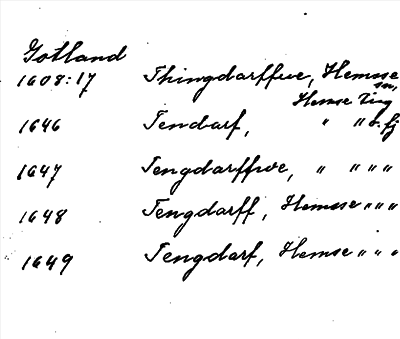 Gotland
1608:17 Thingdarffue, Hemsse
sn,
Hemse Ting
1646 Tendarf, " " o. fj
1647 Tengdarffwe, " " " "
1648 Tengdarff, Hemsse " " "
1649 Tengdarf, Hemse " " "